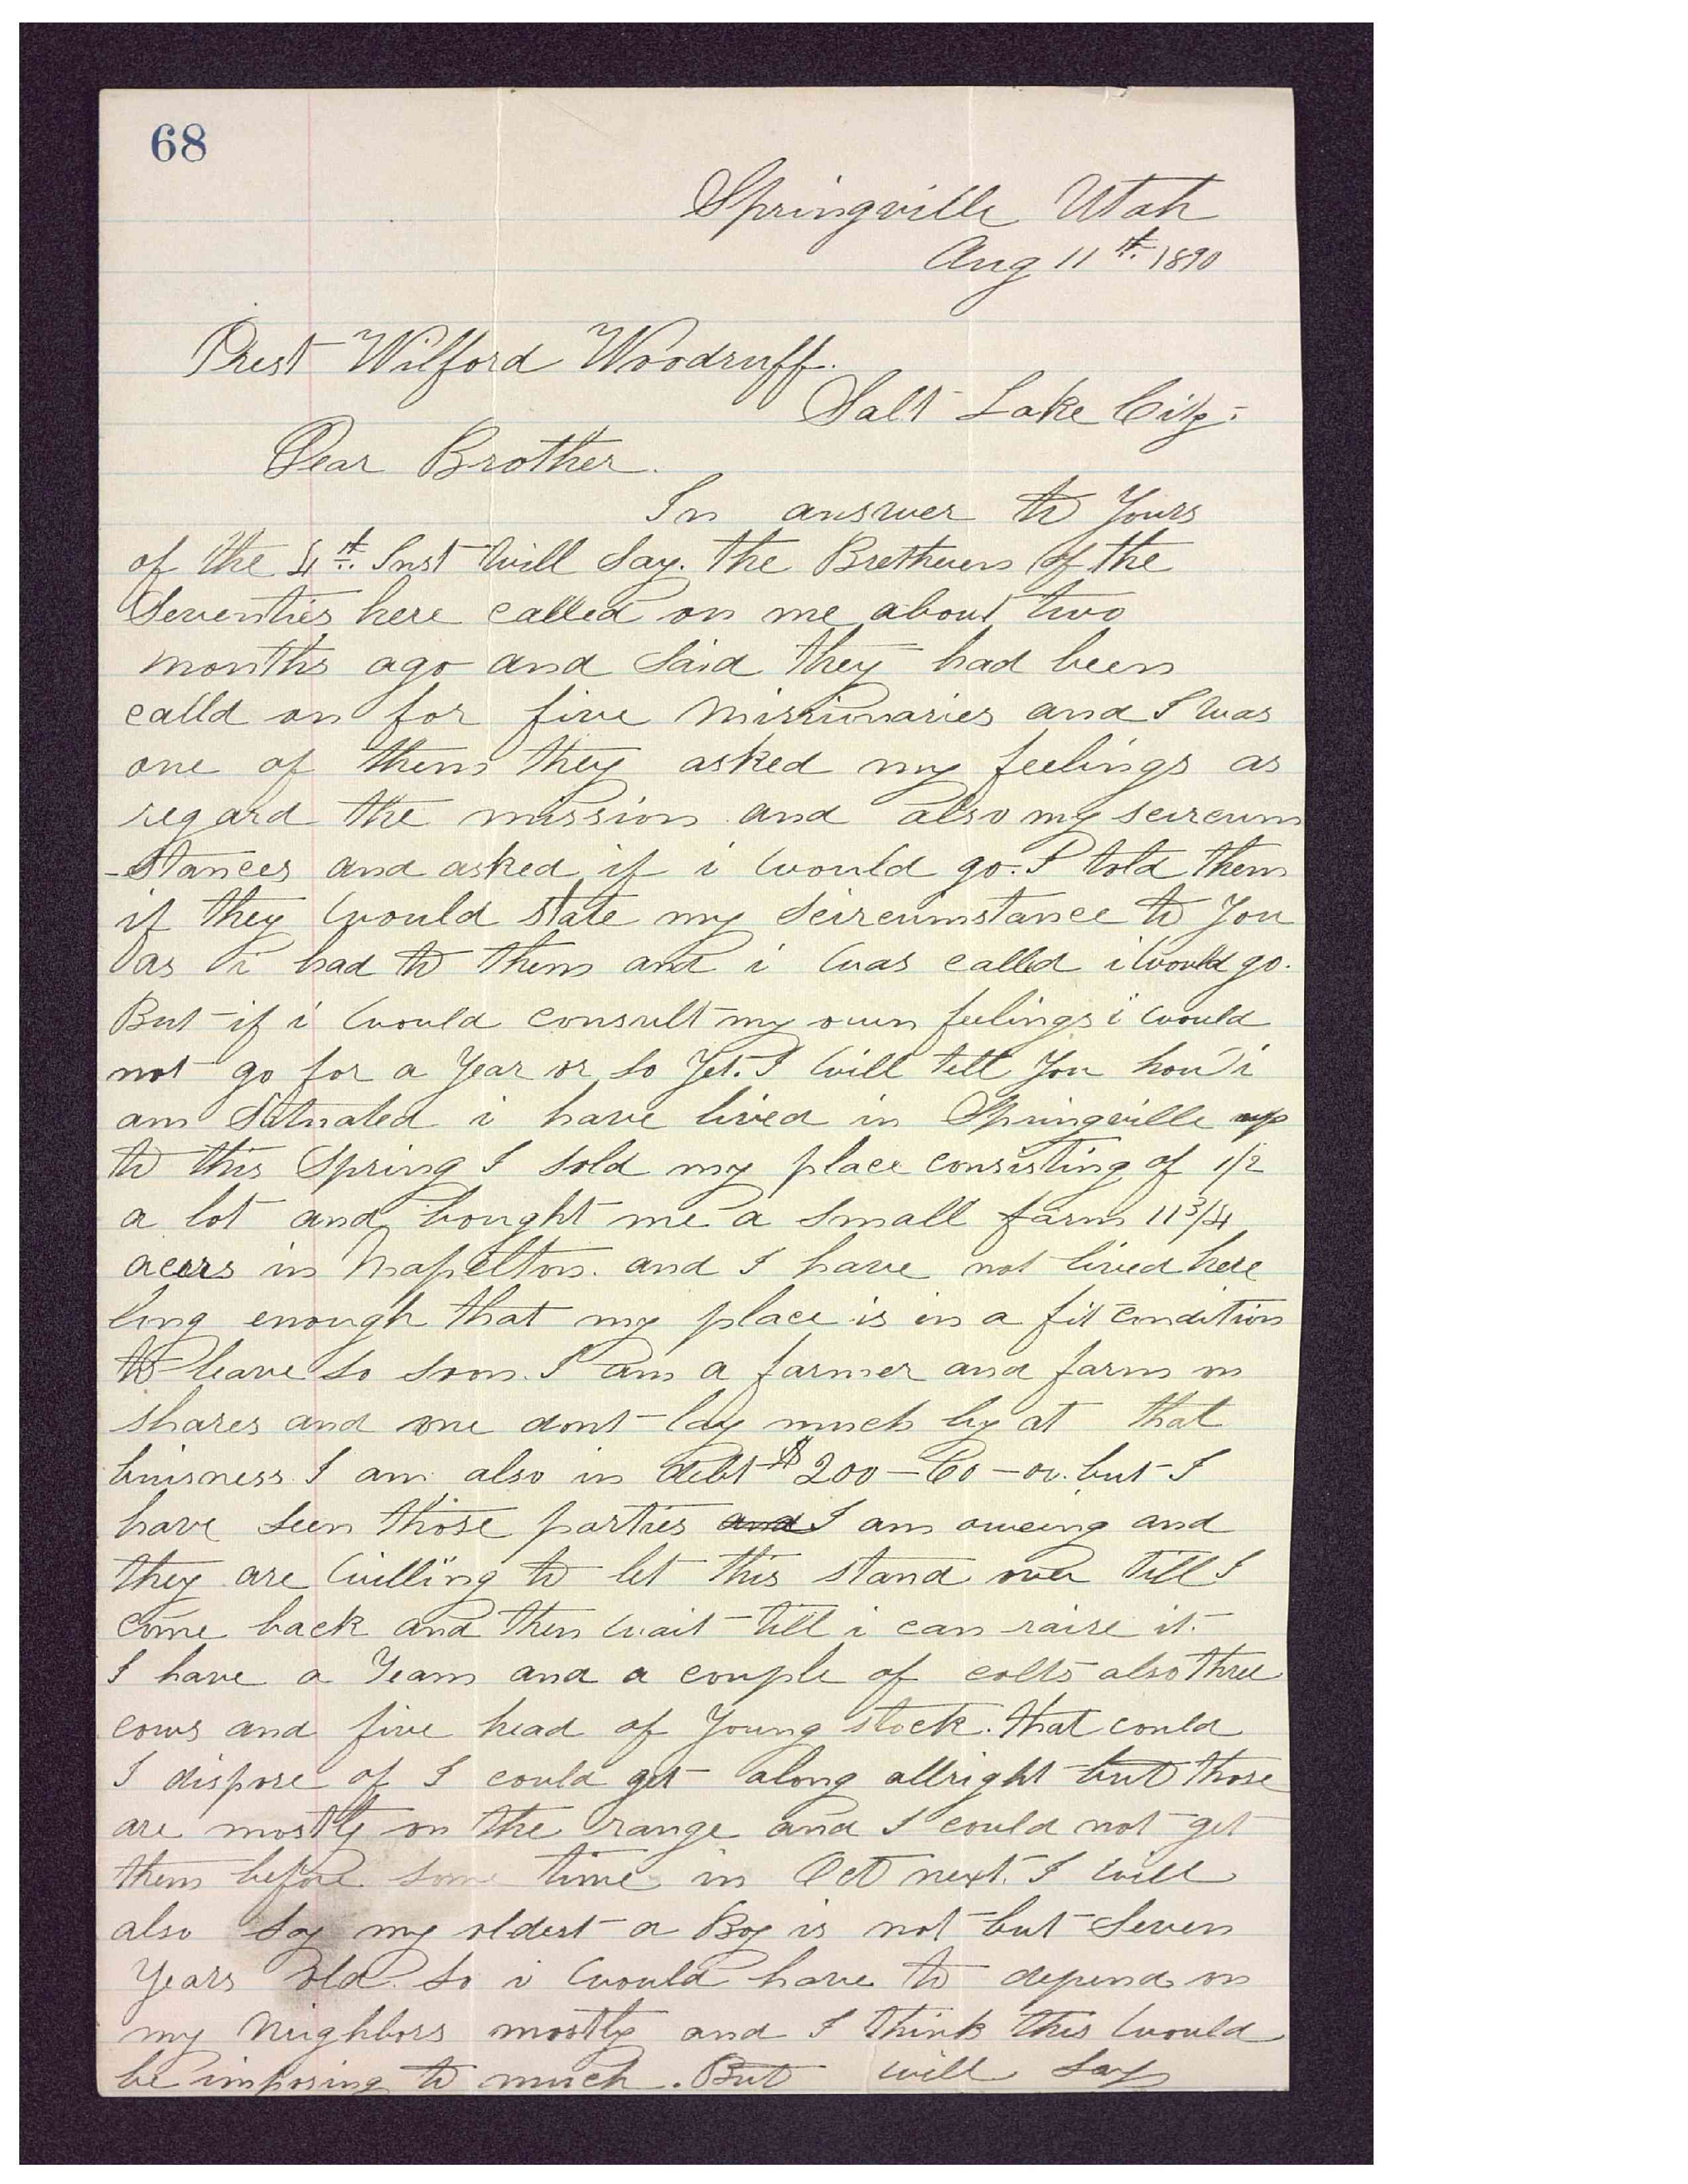 68
Springville Utah
Aug 11th. 1890
Prest Wilford Woodruff.
Salt Lake City.
Dear Brother.
In answer to Yours
of the 4th. Inst will Say. the Bretheren of the
Seventies here called on me about two
months ago and Said they had been
calld on for five Missionaries and I was
one of them they asked my feelings as
regard the mission and also my seircum
-stances and asked if i would go. I told them
if they would state my Seircumstance to You
as i had to them and i was called i would go.
But if i would consult my own feelings i would
not go for a Year or so Yet. I will tell You how i
am Situated i have lived in Springville up
to this Spring I sold my place consisting of 1/2
a lot and bought me a small farm 11 3/4
acers in Mapelton. and I have not lived here
long enough that my place is in a fit condition
to leave so soon. I am a farmer and farm on
shares and one dont lay much by at that
buisness I am also in debt $200- -oo. but I
have seen those parties and I am oweing and
they are willing to let this stand over till I
come back and then wait till i can raise it.
I have a Team and a couple of colts also three
cows and five head of Young stock. that could
I dispose of I could get along allright but those
are mostly on the range and I could not get
them before some time in Oct next. I will
also Say my oldest a Boy is not but Seven
Years old. So i would have to depend on
my Neighbors mostly and I think this would
be imposing to much. But will Say